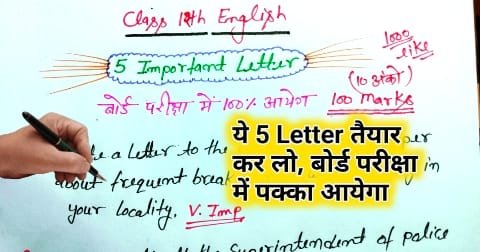 Class 12th English
1000 like
5 Important Letter
(10 अंको)
बोर्ड परीक्षा में 100% आयेगा 100 Marks
ये 5 Letter तैयार
कर लो, बोर्ड परीक्षा
में पक्का आयेगा
a Letter to the
about frequent break in
your locality. V. Imp
Superintendent of police